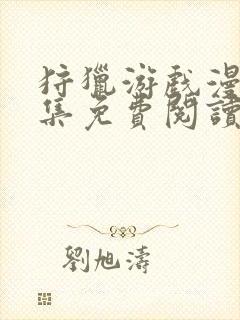 狩獵游戲漫
集免費閱讀
劉旭濤